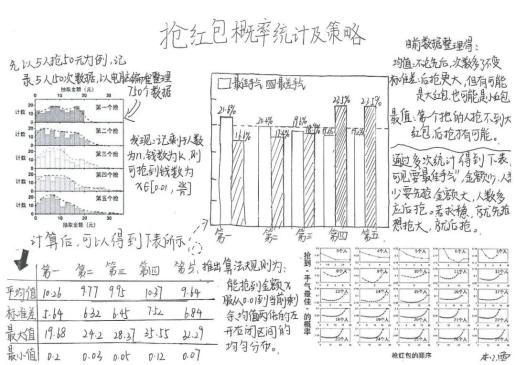 抢红包概率统计及策略
先以5人抢50元为例,记
录5人150次数据,以电脑编程整理
750个数据
抢到金额(元)
0 10 20 30
计数
第一个抢
计数
第二个抢
计数
第三个抢
计数
第四个抢
计数
第五个抢
0 10 20 30
抢到金额(元)
发现:记录于人数
为n,钱数为k,则
可抢到钱数为
x∈[0.01,
最佳手气
最差手气
21.6%
16.1%
20.4%
17.4%
19.6%
22.1%
第一
第二
第三
第四
第五
由前数据整理得:
均值:不论先后,次数多了不变
标准差:后抢更大,但有可能
是大红包,也可能是小红包
最值:第一个抢的人抢不到大
红包后抢有可能。
通过多次统计得到下表,
可见要“最佳手气”,金额少,人
少要先抢,金额大,人数多
应后抢。若求稳,就先抢
想抢大,就后抢。
计算后,可以得到下表所示
第一 第二 第三 第四 第五
平均值 10.26 9.77 9.95 10.37 9.64
标准差 5.64 6.32 6.45 7.52 6.84
最大值 19.68 24.2 28.37 35.55 32.29
最小值 0.2 0.03 0.05 0.12 0.07
推出算法规则为:
能抢到金额X
服从0.01到当前剩
余均值两倍的左
开右闭区间的
均匀分布。
抢到“手气最佳”的概率
抢红包的顺序